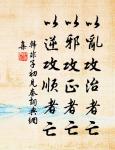 以亂攻治者亡
以邪攻正者亡
以逆攻順者亡
韓非子初見秦詞典網
集